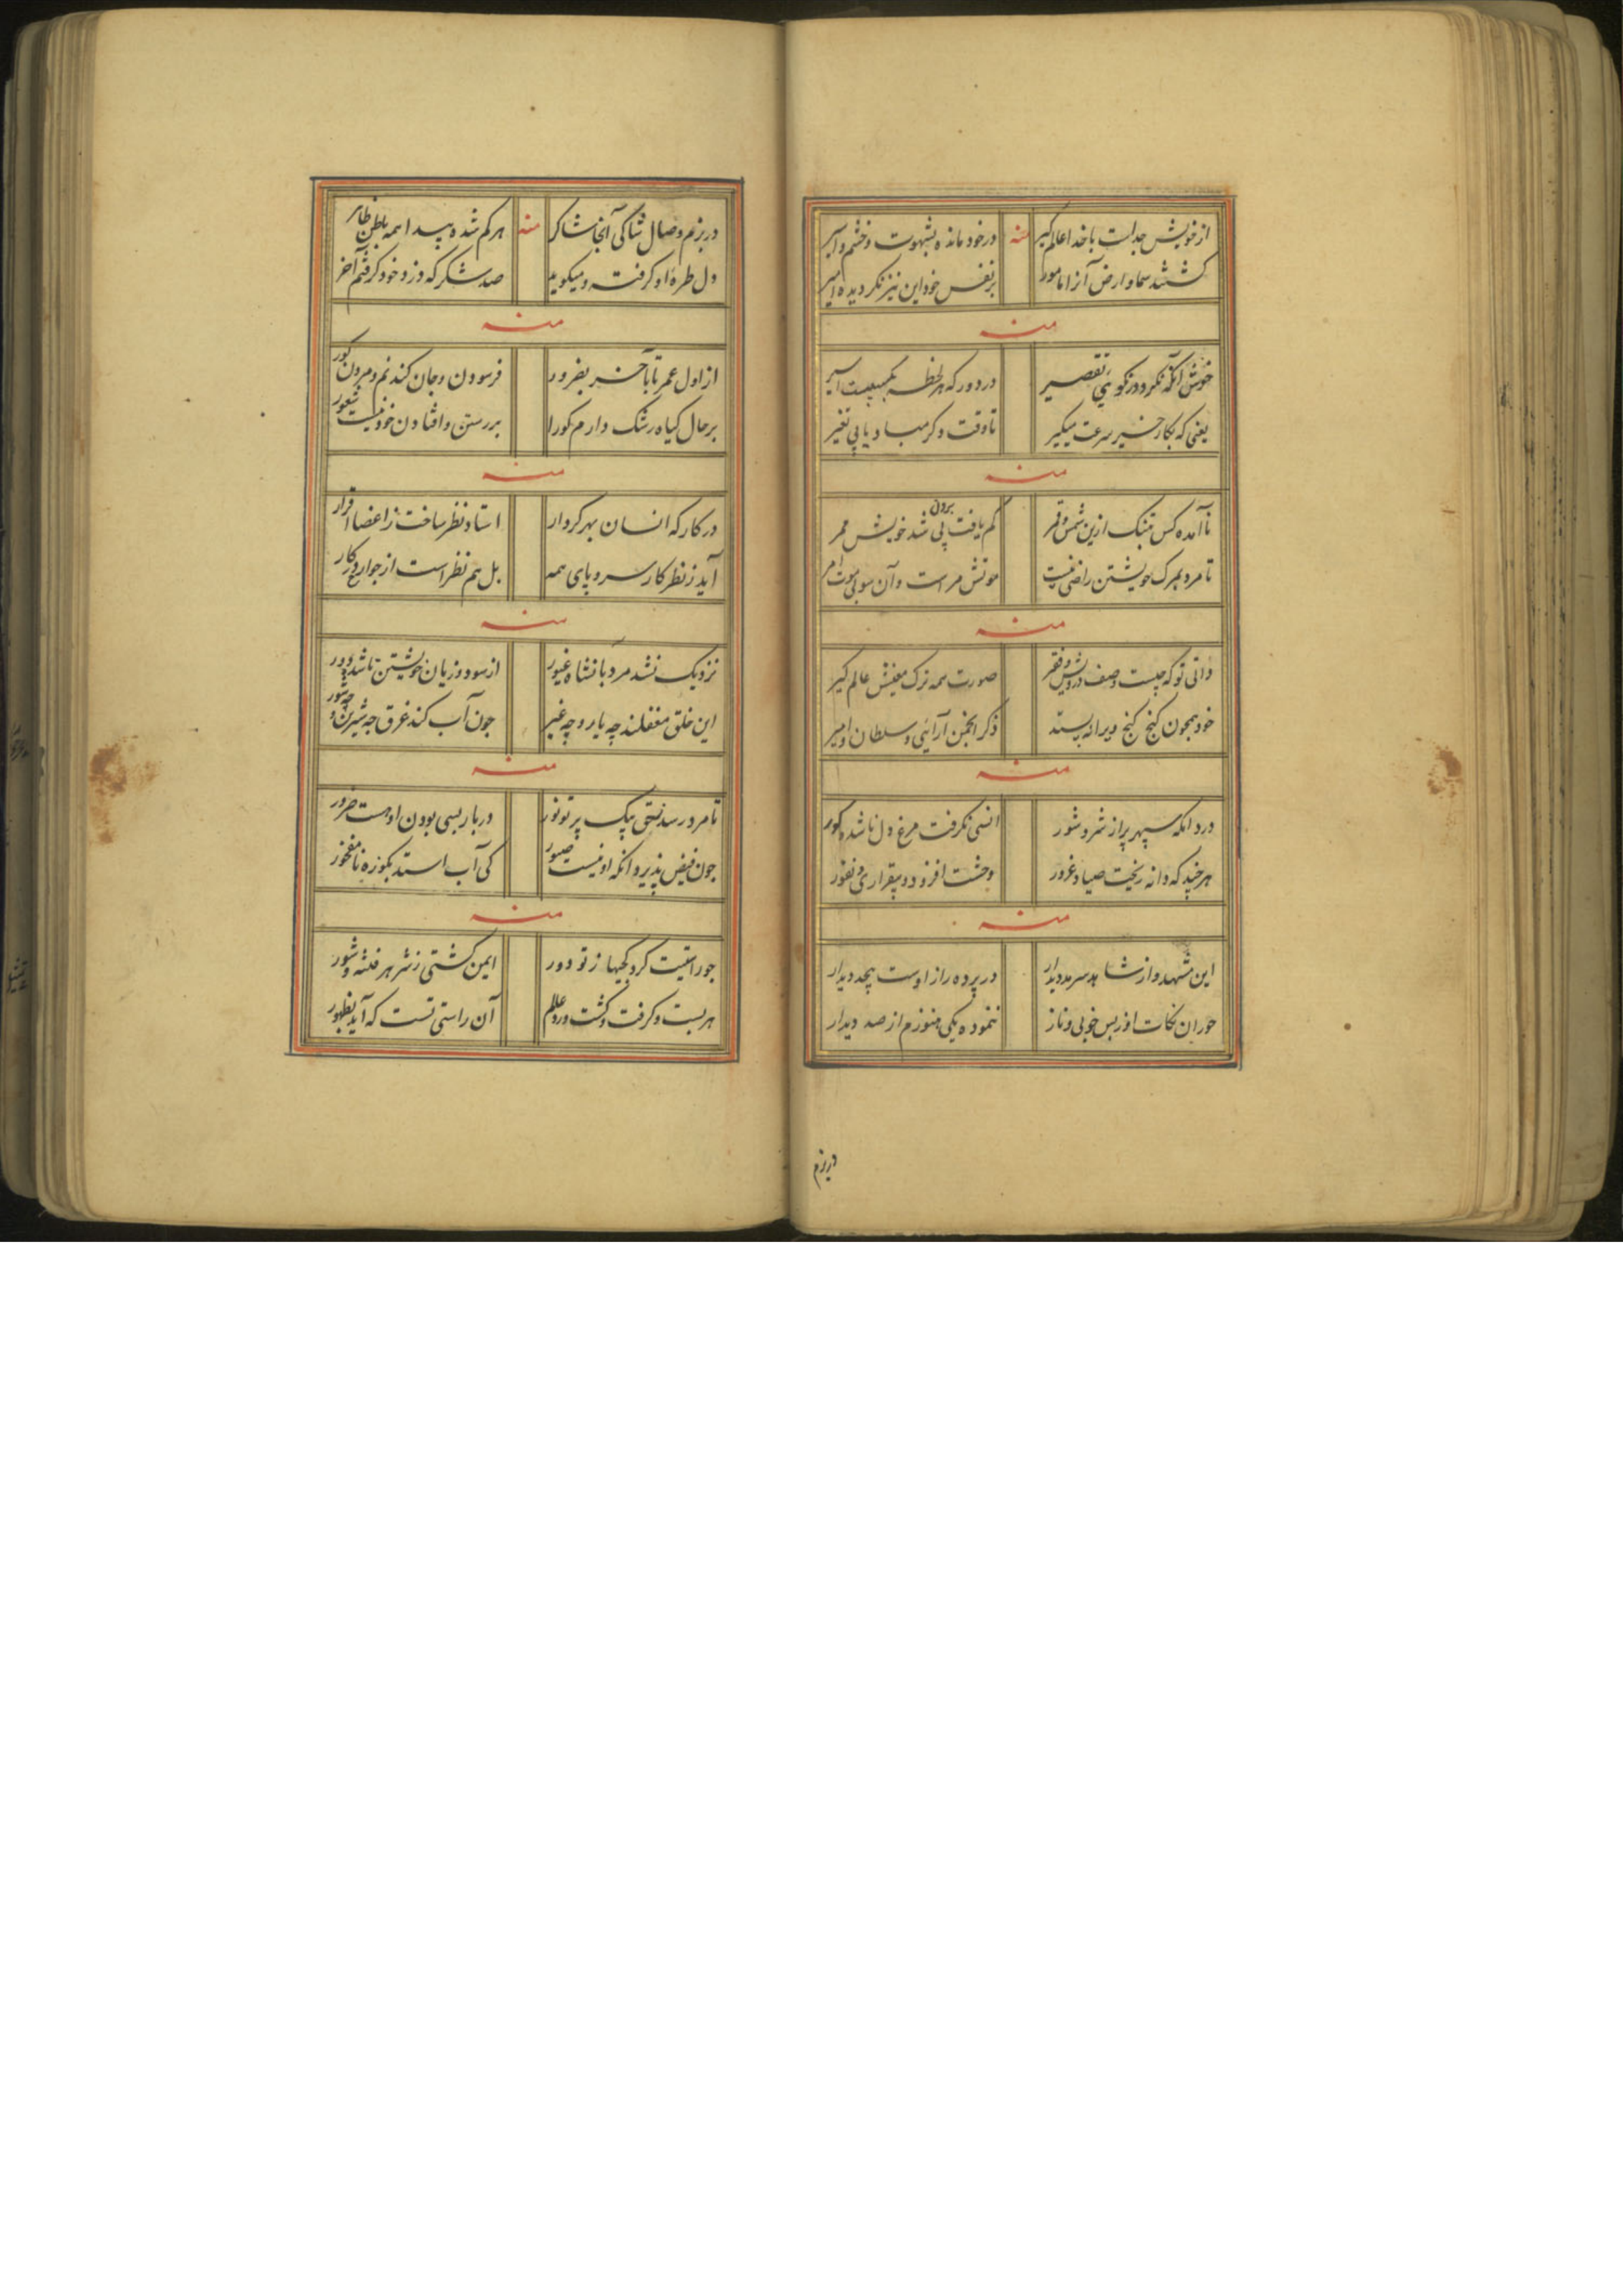 از خویش جداست با خدا عالم گیر
منه
در خود مانده بشهوت و خشم و
کشتند سما و ارض آنرا مامور
بر نفس خود این نیز نکردیده امیر
منه
خوش آنکه نکردد ز نکویی تقصیر
در دور که هر لحظه
یعنی که بکار خیر سرعت میکیر
تا وقت دکر مباد یابی تغیر
منه
ناآمده کس بتنک ازین شمس و قمر
کم یافت پی برون شد خویش ممر
تا مرد بمرک خویشتن راضی نیست
موتش مر است و آن سوی موت امر
منه
دانی تو که چیست وصف درویش و فقر
صورت همه ترک معنیش عالم کیر
خود همچون کنج کنج ویرانه پسند
ذکر انجمن آرائی و سلطان و امیر
منه
درد آنکه سپهر پر از شر و شور
انسی نکرفت مرغ دل ناشده کور
هر چند که دانه ریخت صیاد غرور
وحشت افزود و بیقراری و نفور
منه
این مشهد و از شاهد سرمد دیدار
در پرده راز اوست بیحد دیدار
حوران نکات او ز بس خوبی و ناز
ننموده یکی هنوزم از صد دیدار
در بزم
در بزم وصال شاکی آنجا شاکر
منه
هر کم شده پیدا همه باطن ظاهر
دل طره او کرفته و میکوید
صد شکر که دزد خود کرفتم آخر
منه
از اول عمر تا بآخر بضرور
فرسودن و جان کندنم و مردن کور
بر حال کیاه رشک دارم کورا
بر رستن و افتادن خود نیست شعور
منه
در کار که انسان بهر کردار
استاد نظر ساخت ز اعضا افزار
آید ز نظر کار سر و پای همه
بل هم نظر است از جوارح در کار
منه
نزدیک نشد مرد بانشاه غیور
از سود و زیان خویشتن تا نشد دور
این خلق مغفلند چه یار و چه غیر
چون آب کند غرق چه شیرین و چه شور
منه
تا مرد رسد نیتی پیک پرتو نور
در بار بسی بودن او هست ضرور
چون فیض پذیرد آنکه او نیست صبور
کی آب استد بکوزه نامفخور
منه
چو راستیت کرد کجیها ز تو دور
ایمن کشتی ز شر هر فتنه و شور
هر بست و کرفت و کشت در دو عالم
آن راستی تست که آید بظهور